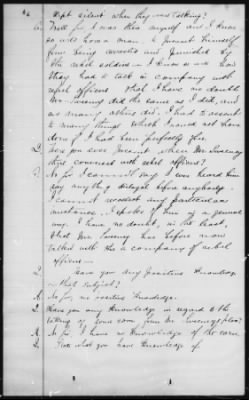 kept silent when they was talking?
A. Well Sir I was there myself and I know
as well how a man, to prevent himself
from being arrested and punished by
the rebel soldiers - I know as we how
they had a talk in company with
rebel officers that I have no doubt
Mr. Sweeny did the same as I did, and
as many others did. I had to assent
to many things which I would not have
if I had been perfectly free
Q. Were you ever present when Mr Sweeny
was conversant with rebel officers?
A. No Sir I cannot say I ever heard him
say anything disloyal before anybody.
I cannot recollect any particular
instance. I spoke of him in a general
way. I have no doubt, in the least,
that Mr. Sweeny has before now
talked with the a company of rebel
officers -
Q. Have you any positive knowledge
on that subject?
A. No Sir, no positive knowledge.
Q. Have you any knowledge in regard to the
taking of some corn from Mr Sweenys place?
A. No Sir, I have no knowledge of the corn
Q. State what you have knowledge of